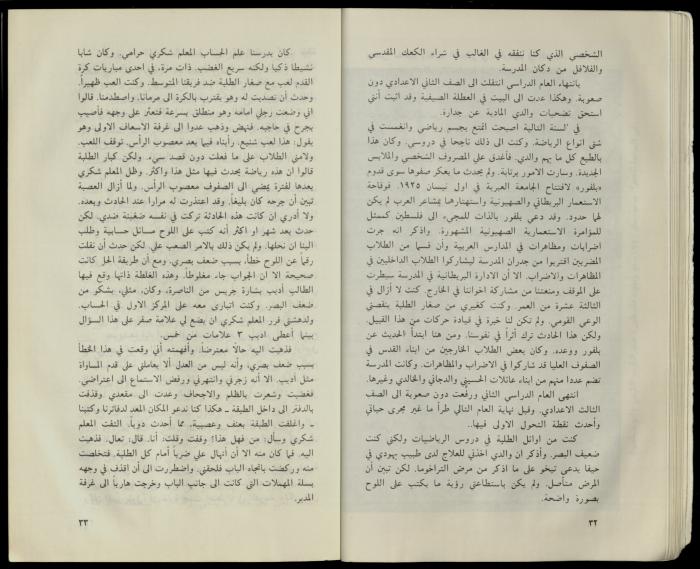 الشخصي الذي كنا ننفقه في الغالب في شراء الكعك المقدسي
والفلافل من دكان المدرسة.
بانتهاء العام الدراسي انتقلت الى الصف الثاني الاعدادي دون
صعوبة. وهكذا عدت الى البيت في العطلة الصيفية وقد اثبت أنني
استحق تضحيات والدي المادية عن جدارة.
في السنة التالية اصبحت اتمتع بجسم رياضي وانغمست في
شتى انواع الرياضة. وكنت الى ذلك ناجحا في دروسي. وكان هذا
بالطبع كل ما يهم والدي. فأغدق علي المصروف الشخصي والملابس
الجديدة. وسارت الامور برتابة. ولم يحدث ما يعكر صفوها سوى قدوم
«بلفور» لافتتاح الجامعة العبرية في اول نيسان ١٩٢٥. فوقاحة
الاستعمار البريطاني والصهيونية واستهتارها بمشاعر العرب لم يكن
لهما حدود. وقد دعي بلفور بالذات للمجيء الى فلسطين كممثل
للمؤامرة الاستعمارية الصهيونية المشهورة. واذكر انه جرت
اضرابات ومظاهرات في المدارس العربية وأن قسما من الطلاب
المضربين اقتربوا من جدران المدرسة ليشاركوا الطلاب الداخليين في
المظاهرات والاضراب. الا أن الادارة البريطانية في المدرسة سيطرت
على الموقف ومنعتنا من مشاركة اخواننا في الخارج. كنت لا أزال في
الثالثة عشرة من العمر. وكنت كغيري من صغار الطلبة ينقصني
الوعي القومي. ولم تكن لنا خبرة في قيادة حركات من هذا القبيل.
ولكن هذا الحادث ترك أثراً في نفوسنا. ومن هنا ابتدأ الحديث عن
بلفور ووعده. وكان بعض الطلاب الخارجين من ابناء القدس في
الصفوف العليا قد شاركوا في الاضراب والمظاهرات. وكانت المدرسة
تضم عددا منهم من ابناء عائلات الحسيني والدجاني والخالدي وغيرها.
انتهى العام الدراسي الثاني ورفعت دون صعوبة الى الصف
الثالث الاعدادي. وقبل نهاية العام التالي طرأ ما غير مجرى حياتي
وأحدث نقطة التحول الاولى فيها..
كنت من اوائل الطلبة في دروس الرياضيات ولكني كنت
ضعيف البصر. وأذكر ان والدي اخذني للعلاج لدى طبيب يهودي في
حيفا يدعى تيخو على ما اذكر من مرض التراخوما. لكن تبين أن
المرض متأصل. ولم يكن باستطاعتي رؤية ما يكتب على اللوح
بصورة واضحة.
٣٢
كان يدرسنا علم الحساب المعلم شكري حرامي. وكان شابا
نشيطا ذكيا ولكنه سريع الغضب. ذات مرة، في احدى مباريات كرة
القدم لعب مع صغار الطلبة ضد فريقنا المتوسط. وكنت العب ظهيراً.
وحدث أن تصديت له وهو يقترب بالكرة الى مرمانا. واصطدمنا. قالوا
اني وضعت رجلي امامه وهو منطلق بسرعة فتعثر على وجهه فأصيب
بجرح في حاجبه. فنهض وذهب عدوا الى غرفة الاسعاف الاولى وهو
يقول: هذا لعب شنيع. رأيناه فيما بعد معصوب الرأس. توقف اللعب.
ولامني الطلاب على ما فعلت دون قصد سيء. ولكن كبار الطلبة
قالوا ان هذه رياضة يحدث فيها مثل هذا واكثر. وظل المعلم شكري
بعدها لفترة يمضي الى الصفوف معصوب الرأس. ولما أزال العصبة
تبين أن جرحه كان بليغاً. وقد اعتذرت له مرارا عند الحادث وبعده.
ولا أدري ان كانت هذه الحادثة تركت في نفسه ضغينة ضدي. لكن
حدث بعد شهر او اكثر أنه كتب على اللوح مسائل حسابية وطلب
الينا ان نحلها. ولم يكن ذلك بالامر الصعب علي. لكن حدث أن نقلت
رقماً عن اللوح خطأ، بسبب ضعف بصري. ومع أن طريقة الحل كانت
صحيحة الا ان الجواب جاء مغلوطاً. وهذه الغلطة ذاتها وقع فيها
الطالب أديب بشارة جريس من الناصرة، وكان، مثلي، يشكو من
ضعف البصر. وكنت اتبارى معه على المركز الاول في الحساب.
ولدهشتي قرر المعلم شكري ان يضع لي علامة صفر على هذا السؤال
بينما أعطى اديب ٣ علامات من خمس.
فذهبت اليه حالاً معترضا. وأفهمته أني وقعت في هذا الخطأ
بسبب ضعف بصري، وأنه ليس من العدل ألا يعاملني على قدم المساواة
مثل أديب. الا أنه زجرني وانتهرني ورفض الاستماع الى اعتراضي.
فغضبت وشعرت بالظلم والاجحاف وعدت الى مقعدي وقذفت
بالدفتر الى داخل الطبقة ــ هكذا كنا ندعو المكان المعد لدفاترنا وكتبنا
ــ واغلقت الطبقة بعنف وعصبية، مما أحدث دوياً. التفت المعلم
شكري وسأل: من فعل هذا؟ وقفت وقلت: أنا. قال: تعال. فذهبت
اليه. فما كان منه الا أن انهال علي ضرباً أمام كل الطلبة. فتخلصت
منه وركضت باتجاه الباب فلحقني. واضطررت الى أن اقذف في وجهه
بسلة المهملات التي كانت الى جانب الباب وخرجت هارباً الى غرفة
المدير.
٣٣